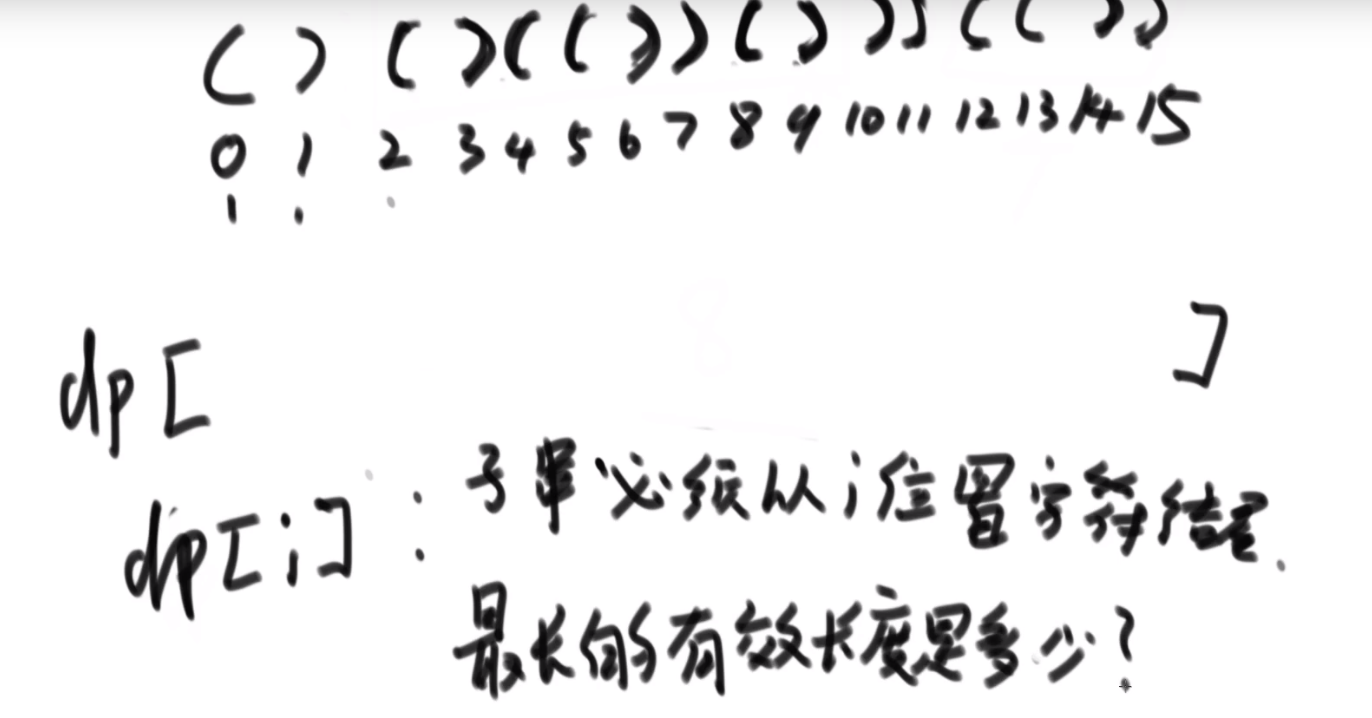 ( ) ( ) ( ( ) ) ( ) ) ] ( ( ) )
0 1 2 3 4 5 6 7 8 9 10 11 12 13 14 15
dp [ ]
dp[i] : 子串必须从i位置字符结尾.
最长的有效长度是多少?